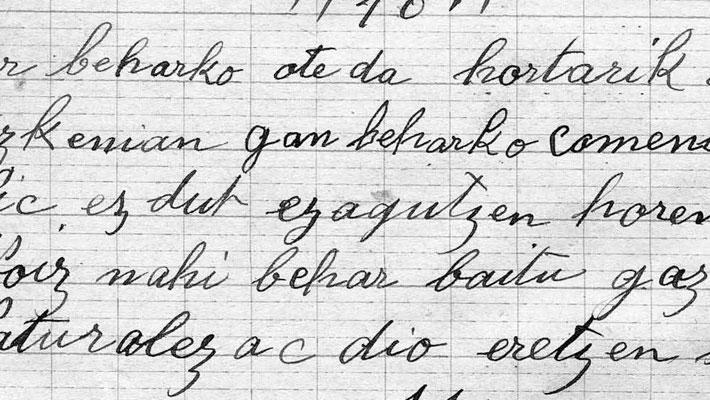 beharko ote da hortarik
kenian gan beharko
ez dut ezagutzen horen
nahi behar baitu gaz
aturalezac dio eretzen